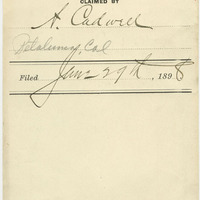 CLAIMED BY
A. Cadwell
Petaluma, Cal
Filed Jan 29th, 1898